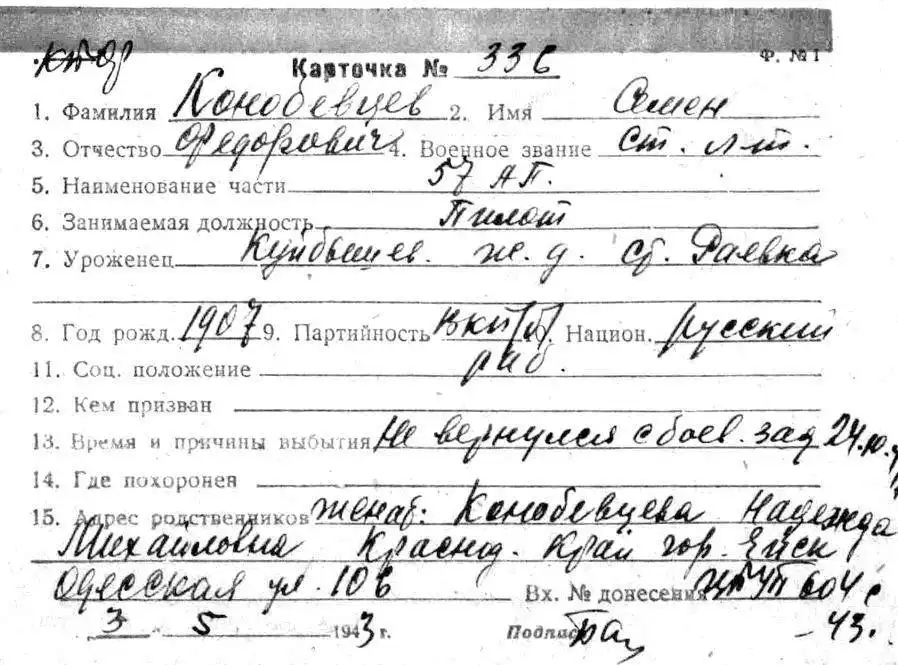 Ф. №1
Карточка № 336
1. Фамилия Конобевцев 2. Имя Семен
3. Отчество Федорович 4. Военное звание ст. л-т.
5. Наименование части 57 АП.
6. Занимаемая должность Пилот
7. Уроженец Куйбышев. ж. д. ст. Раевка
8. Год рожд. 1907 9. Партийность ВКП(б) 10. Национ. русский
11. Соц. положение раб.
12. Кем призван
13. Время и причины выбытия Не вернулся с боев. зад 24.10.
14. Где похоронен
15. Адрес родственников жена: Конобевцева Надежда
Михайловна Краснод. край гор. Ейск
Одесская ул. 10 в
Вх. № донесения
3 " 5 1943 г. Подпись 43.